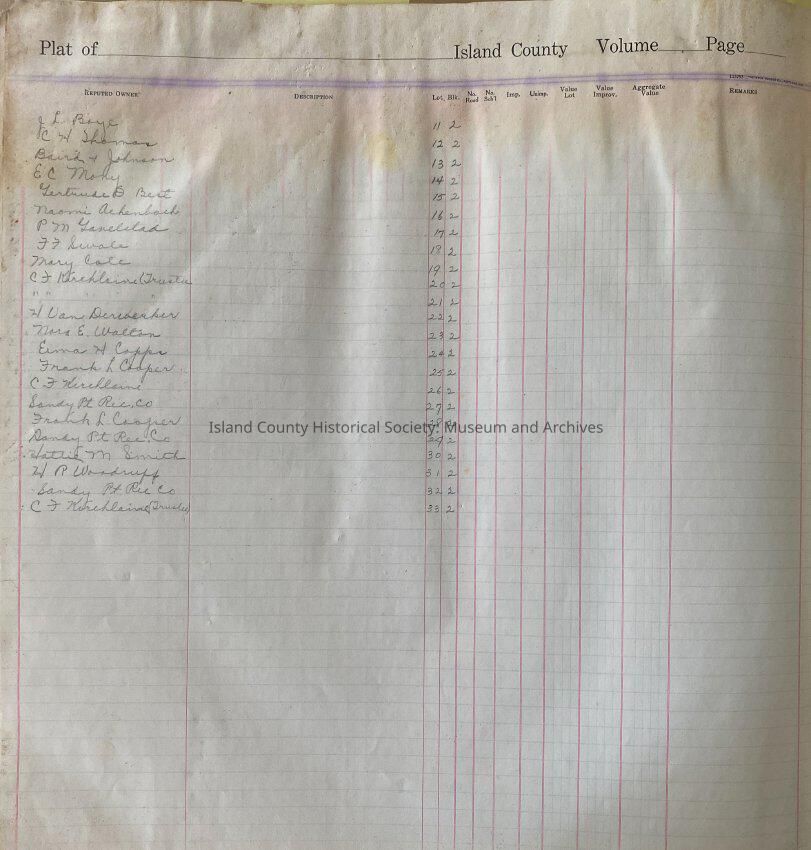 Plat of Island County Volume Page
Reputed Owner Description Lot. Blk. No. Road No. Sch'l Imp. Unimp. Value Lot Value Improv. Aggregate Value Remarks
J L Boye 11 2
C H Thomas 12 2
Baird & Johnson 13 2
E C Mohy 14 2
Gertrude B Best 15 2
Naomi Achenbach 16 2
P M 17 2
F F 18 2
Mary Cole 19 2
C F Kirchlaine (Trustee 20 2
" " " " 21 2
H Van Derweaker 22 2
Nora E. Walton 23 2
Erma H Copps 24 2
Frank L Cooper 25 2
C F Kirchlaine 26 2
Sandy Pt Rec. Co 27 2
Frank L. Cooper 28 2
Island County Historical Society: Museum and Archives
Sandy Pt Rec. Co 29 2
Hattie M Smith 30 2
H P Woodruff 31 2
Sandy Pt Rec Co 32 2
C F Kirchlaine (Trustee) 33 2